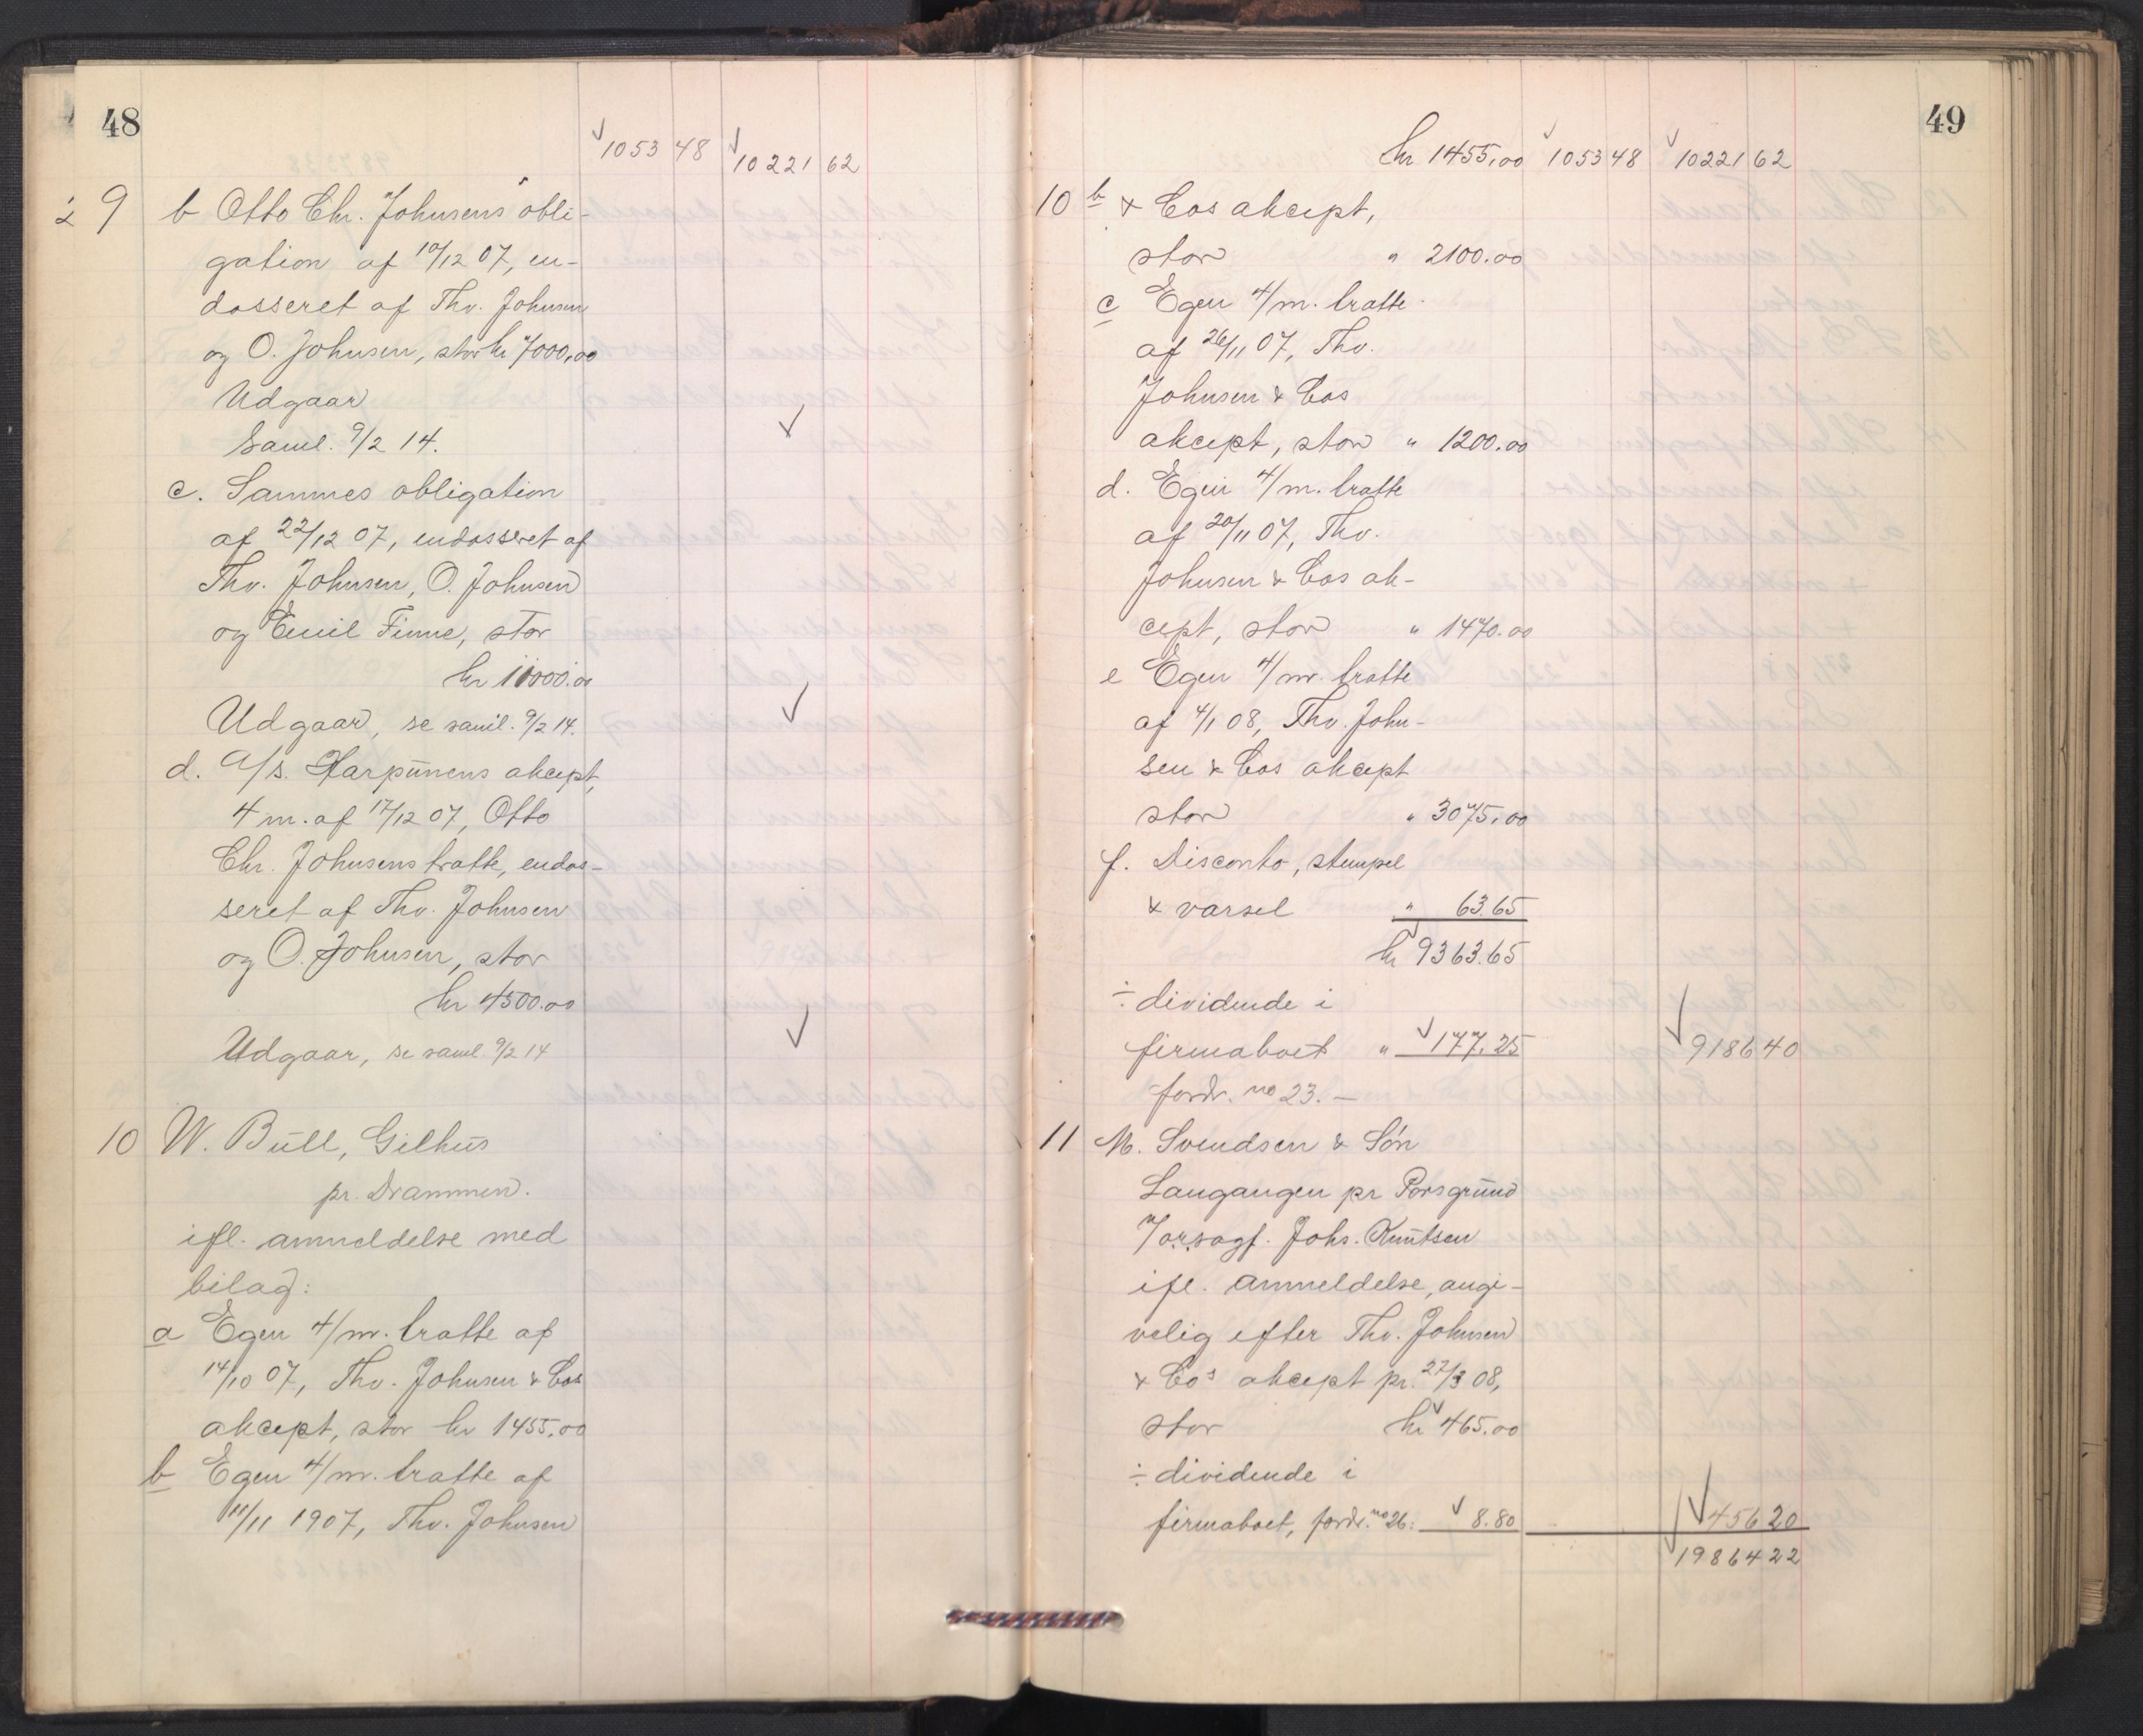 48
1053 48 10221 62
9 b Otto Chr. Johnsens obli-
gation af 10/12 07, en-
dosseret af Thv. Johnsen
og O. Johnsen, stor kr 7000,00
Udgaar
Saml. 9/2 14.
c. Sammes obligation
af 22/12 07, endosseret af
Thv. Johnsen, O. Johnsen
og Emil Finne, stor
kr 11000.00
Udgaar, se saml. 9/2 14.
d. A/s. Harpunens akcept,
4 m. af 17/12 07, Otto
Chr. Johnsens tratte, endos-
seret af Thv. Johnsen
og O. Johnsen, stor
kr 4500.00
Udgaar, se saml. 9/2 14
10 W. Bull, Gilhus
pr. Drammen.
ifl. anmeldelse med
bilag:
a Egen 4/m. tratte af
14/10 07, Thv. Johnsen & Cos
akcept, stor kr 1455,00
b Egen 4/m. tratte af
11/11 1907, Thv. Johnsen
49
kr 1455,00 1053 48 10221 62
10 b & Cos akcept,
stor " 2100.00
c Egen 4/m. tratte
af 26/11 07, Thv.
Johnsen & Cos
akcept, stor " 1200.00
d. Egen 4/m. tratte
af 20/11 07, Thv.
Johnsen & Cos ak-
cept, stor " 1470.00
e Egen 4/m. tratte
af 4/1 08, Thv. John-
sen & Cos akcept
stor " 3075,00
f. Disconto, stempel
& varsel " 63.65
kr 9363.65
÷ dividende i
firmaboet " 177.25 9186 40
fordr. no 23. —
11 M. Svendsen & Søn
Langangen pr Porsgrund
v/ orsagf. Johs. Knutsen
ifl. anmeldelse, angi-
velig efter Thv. Johnsen
& Cos akcept pr. 27/3 08,
stor kr 465.00
÷ dividende i
firmaboet, fordr. no 26: 8.80 456 20
19864 22